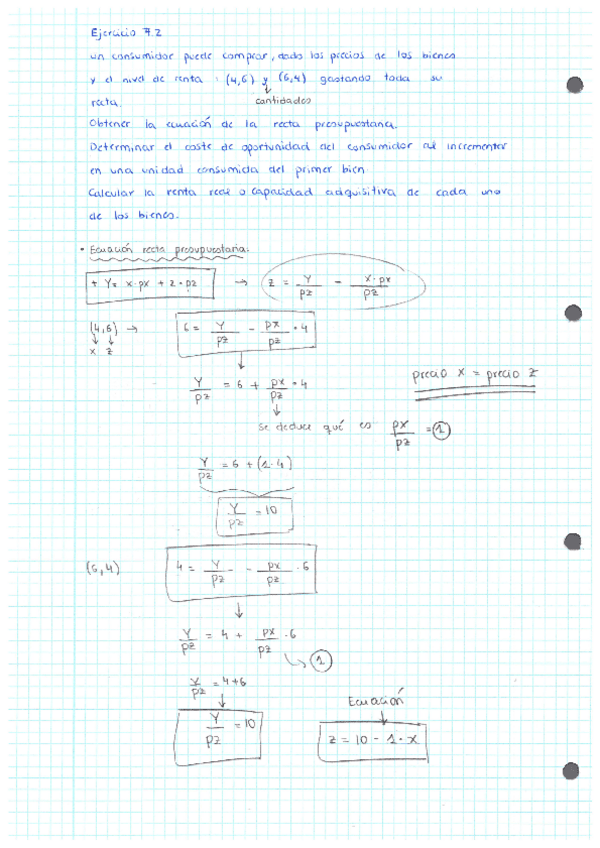 Ejercicio 7.2
un consumidor puede comprar, dado los precios de los bienes
y el nivel de renta : (4,6) y (6,4) gastando toda su
recta. cantidades
Obtener la ecuación de la recta presupuestaria.
Determinar el coste de oportunidad del consumidor al incrementar
en una unidad consumida del primer bien
Calcular la renta real o capacidad adquisitiva de cada uno
de los bienes.
• Ecuación recta presupuestaria.
+ Y = x·px + z·pz → z = Y/pz - x·px/pz
(4,6) → 6 = Y/pz - px/pz · 4
x z
Y/pz = 6 + px/pz · 4
precio x = precio z
se deduce qué es px/pz = 1
Y/pz = 6 + (1·4)
Y/pz = 10
(6,4) 4 = Y/pz - px/pz · 6
Y/pz = 4 + px/pz · 6
1
Y/pz = 4+6
Ecuación
Y/pz = 10
z = 10 - 1·x